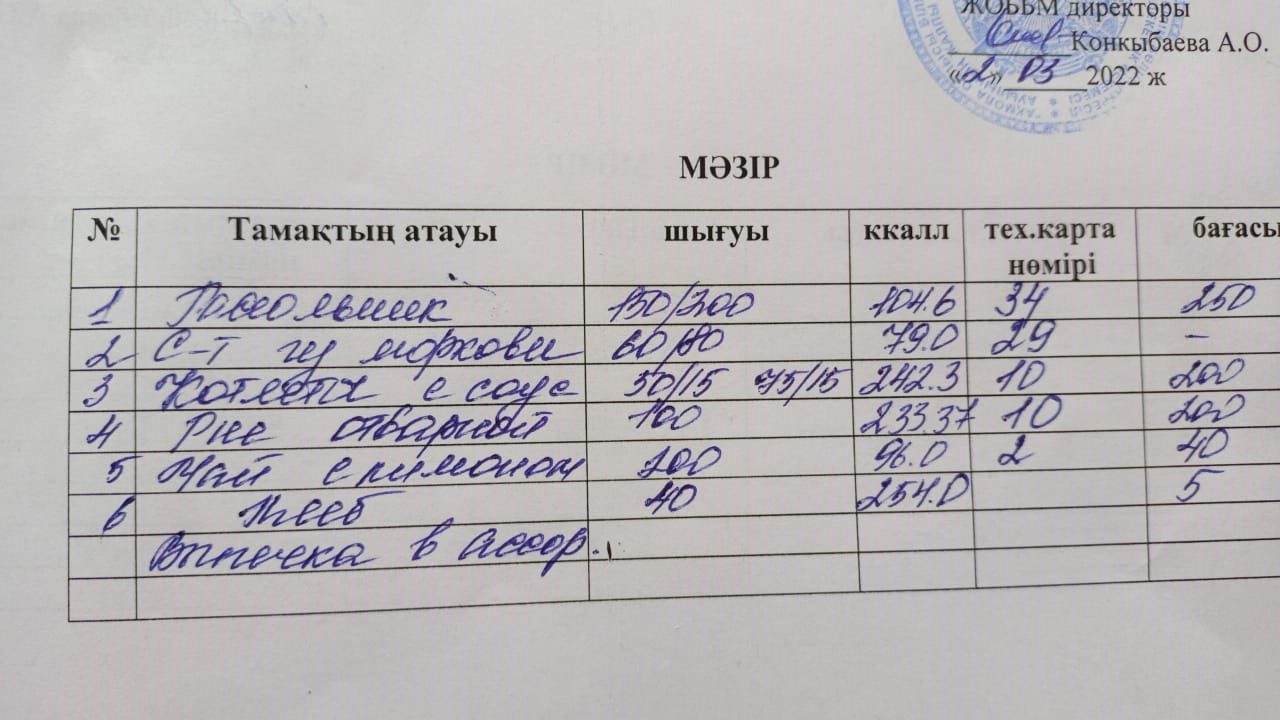 ЖОББМ директоры
Конкыбаева А.О.
«2» 03 2022 ж
МӘЗІР
№ Тамақтың атауы шығуы ккалл тех.карта нөмірі бағасы
1 Рассольник 150/200 104.6 34 250
2 С-т из моркови 60/80 79.0 29 –
3 Котлеты с соус 50/15 75/15 242.3 10 200
4 Рис отварной 100 233.37 10 200
5 Чай с лимоном 200 96.0 2 40
6 Хлеб 40 254.0 5
Выпечка в ассор.